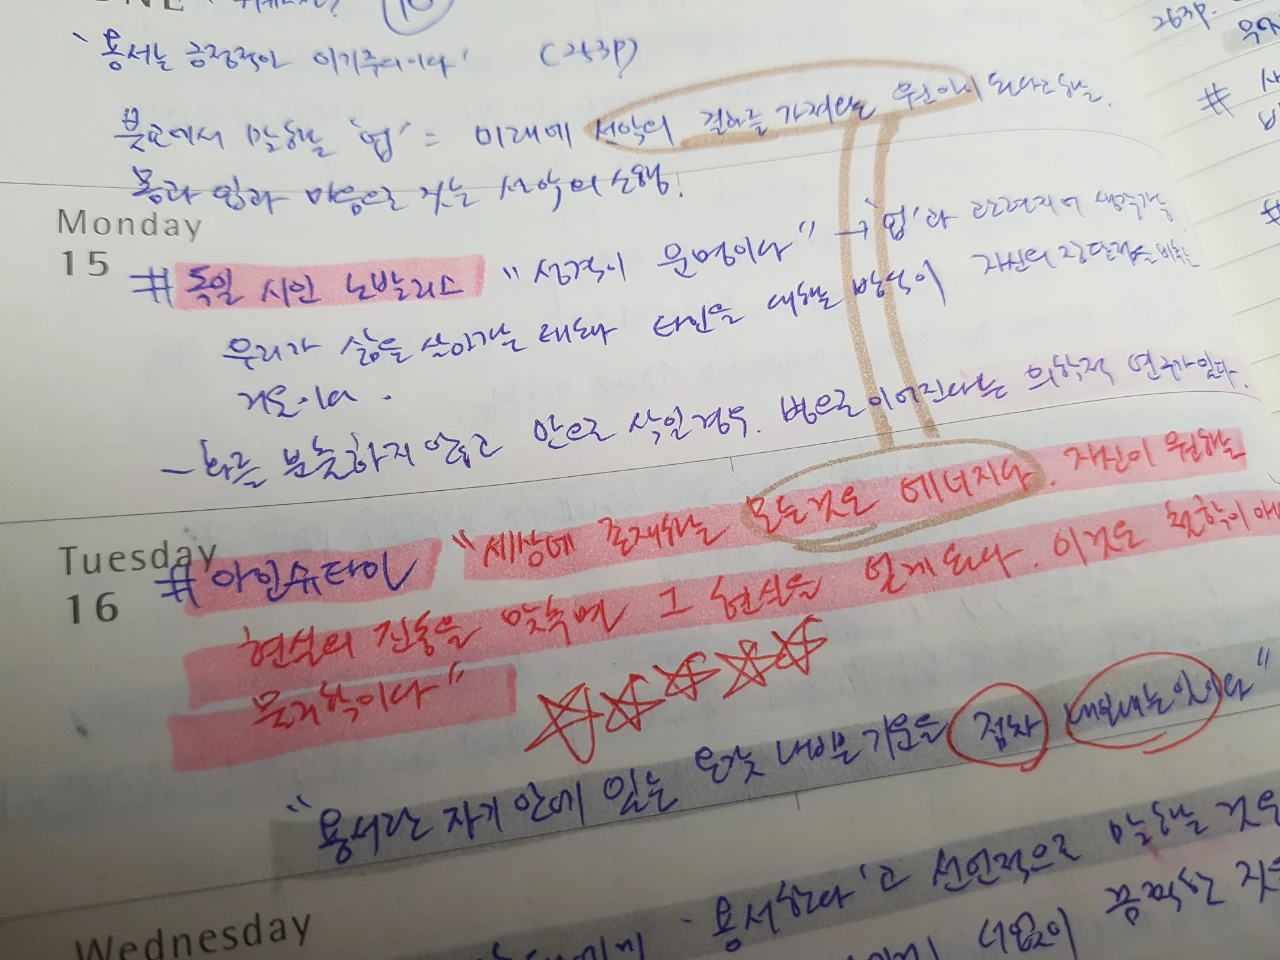 '용서는 긍정적인 이기주의이다' (253P)
263P.
불교에서 말하는 '업' = 미래에 선악의 결과를 가져오는 원인이 된다고 하는
몸과 입과 마음으로 짓는 선악의 소행!
Monday
15
# 독일 시인 노발리스 "성격이 운명이다" → '업'과 관련지어 생각
우리가 삶을 살아가는 태도와 타인을 대하는 방식이 자신의 장단점을 비추는
거울이다.
- 화를 분출하지 않고 안으로 삭일 경우. 병으로 이어진다는 의학적 연구가 있다.
Tuesday
16
# 아인슈타인 "세상에 존재하는 모든것은 에너지다. 자신이 원하는
현실의 진동을 맞추면 그 현실을 얻게 된다. 이것은 철학이 아
물리학이다"
"용서란 자기 안에 있는 온갖 나쁜 기운을 점차 내보내는 것이다"
용서한다'고 선언적으로 말하는 것은
Wednesday